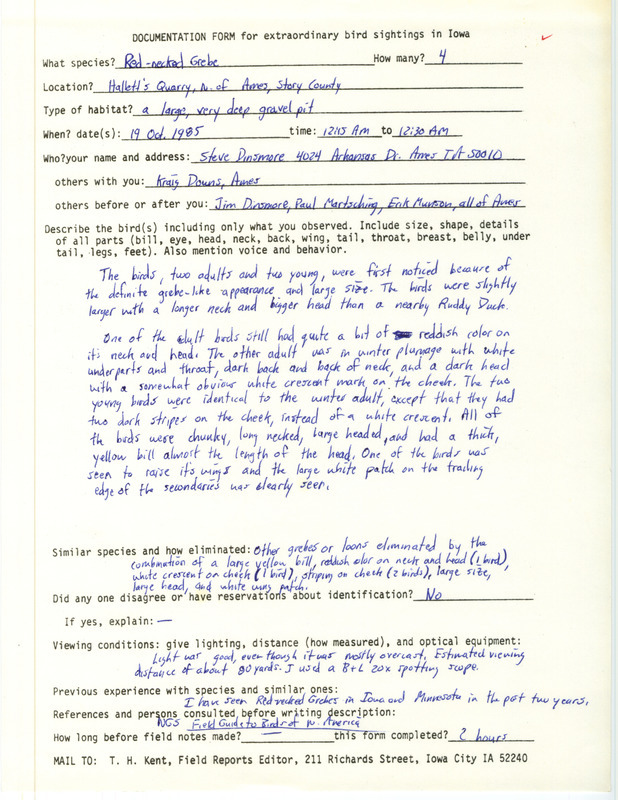 DOCUMENTATION FORM for extraordinary bird sightings in Iowa
What species? Red-necked Grebe How many? 4
Location? Hallett's Quarry, N. of Ames, Story County
Type of habitat? a large, very deep gravel pit
When? date(s): 19 Oct. 1985 time: 12:15 AM to 12:30 AM
Who?your name and address: Steve Dinsmore 4024 Arkansas Dr. Ames IA 50010
others with you: Kraig Downs, Ames
others before or after you: Jim Dinsmore, Paul Martsching, Erik Munson, all of Ames
Describe the bird(s) including only what you observed. Include size, shape, details
of all parts (bill, eye, head, neck, back, wing, tail, throat, breast, belly, under
tail, legs, feet). Also mention voice and behavior.
The birds, two adults and two young, were first noticed because of
the definite grebe-like appearance and large size. The birds were slightly
larger with a longer neck and bigger head than a nearby Ruddy Duck.
One of the adult birds still had quite a bit of reddish color on
it's neck and head. The other adult was in winter plumage with white
underparts and throat, dark back and back of neck, and a dark head
with a somewhat obvious white crescent mark on the cheek. The two
young birds were identical to the winter adult, except that they had
two dark stripes on the cheek, instead of a white crescent. All of
the birds were chunky, long necked, large headed, and had a thick,
yellow bill almost the length of the head. One of the birds was
seen to raise it's wings and the large white patch on the trailing
edge of the secondaries was clearly seen.
Similar species and how eliminated: Other grebes or loons eliminated by the
combination of a large yellow bill, reddish color on neck and head (1 bird),
white crescent on cheek (1 bird), striping on cheek (2 birds), large size,
large head, and white wing patch.
Did any one disagree or have reservations about identification? No
If yes, explain: —
Viewing conditions: give lighting, distance (how measured), and optical equipment:
Light was good, even though it was mostly overcast. Estimated viewing
distance of about 80 yards. I used a B+L 20x spotting scope.
Previous experience with species and similar ones:
I have seen Red-necked Grebes in Iowa and Minnesota in the past two years.
References and persons consulted before writing description:
NGS Field Guide to Birds of N. America
How long before field notes made? — this form completed? 2 hours
MAIL TO: T. H. Kent, Field Reports Editor, 211 Richards Street, Iowa City IA 52240